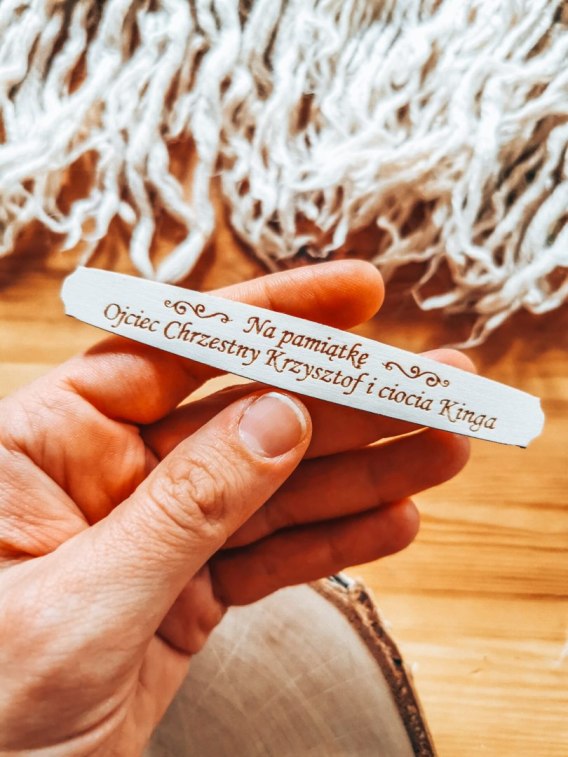 Na pamiątkę
Ojciec Chrzestny Krzysztof i ciocia Kinga